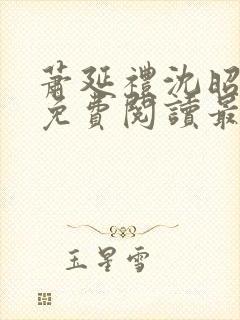 蕭延禮沈昭
免費閱讀最
玉星雪